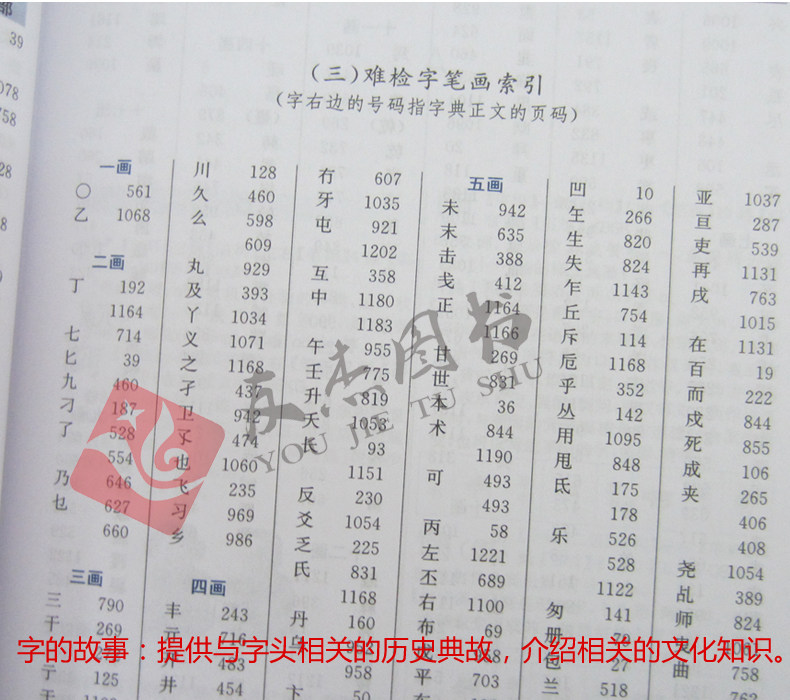 部
39
078
758
28
(三)难检字笔画索引
(字右边的号码指字典正文的页码)
一画
〇 561
乙 1068
二画
丁 192
1164
七 714
匕 39
九 460
刁 187
了 528
554
乃 646
乜 627
660
三画
三 790
干 269
亍 125
于
川 128
久 460
么 598
609
丸 929
及 393
丫 1034
义 1071
之 1168
孑 437
卫 942
孓 474
也 1060
飞 235
习 969
乡 986
四画
丰 243
元 716
483
井 454
冇 607
牙 1035
屯 921
1202
互 358
中 1180
1183
午 955
壬 775
升 819
夭 1053
长 93
1151
反 230
爻 1054
乏 225
氏 831
1168
丹 160
乌 952
958
卞 50
五画
未 942
末 635
击 388
戋 412
正 1164
1166
甘 269
世 831
本 36
术 844
1190
可 493
493
丙 58
左 1221
丕 689
右 1100
布 69
平 703
凹 10
266
生 820
失 824
乍 1143
丘 754
斥 114
卮 1168
乎 352
丛 142
用 1095
甩 848
氐 175
178
乐 526
528
1122
匆 141
册 79
包 27
兰 518
亚 1037
亘 287
吏 539
再 1131
戌 763
1015
在 1131
百 19
而 222
戍 844
死 855
成 106
夹 265
406
408
尧 1054
乩 389
师 824
曲 758
763
友杰图书
YOU JIE TU SHU
字的故事：提供与字头相关的历史典故，介绍相关的文化知识。